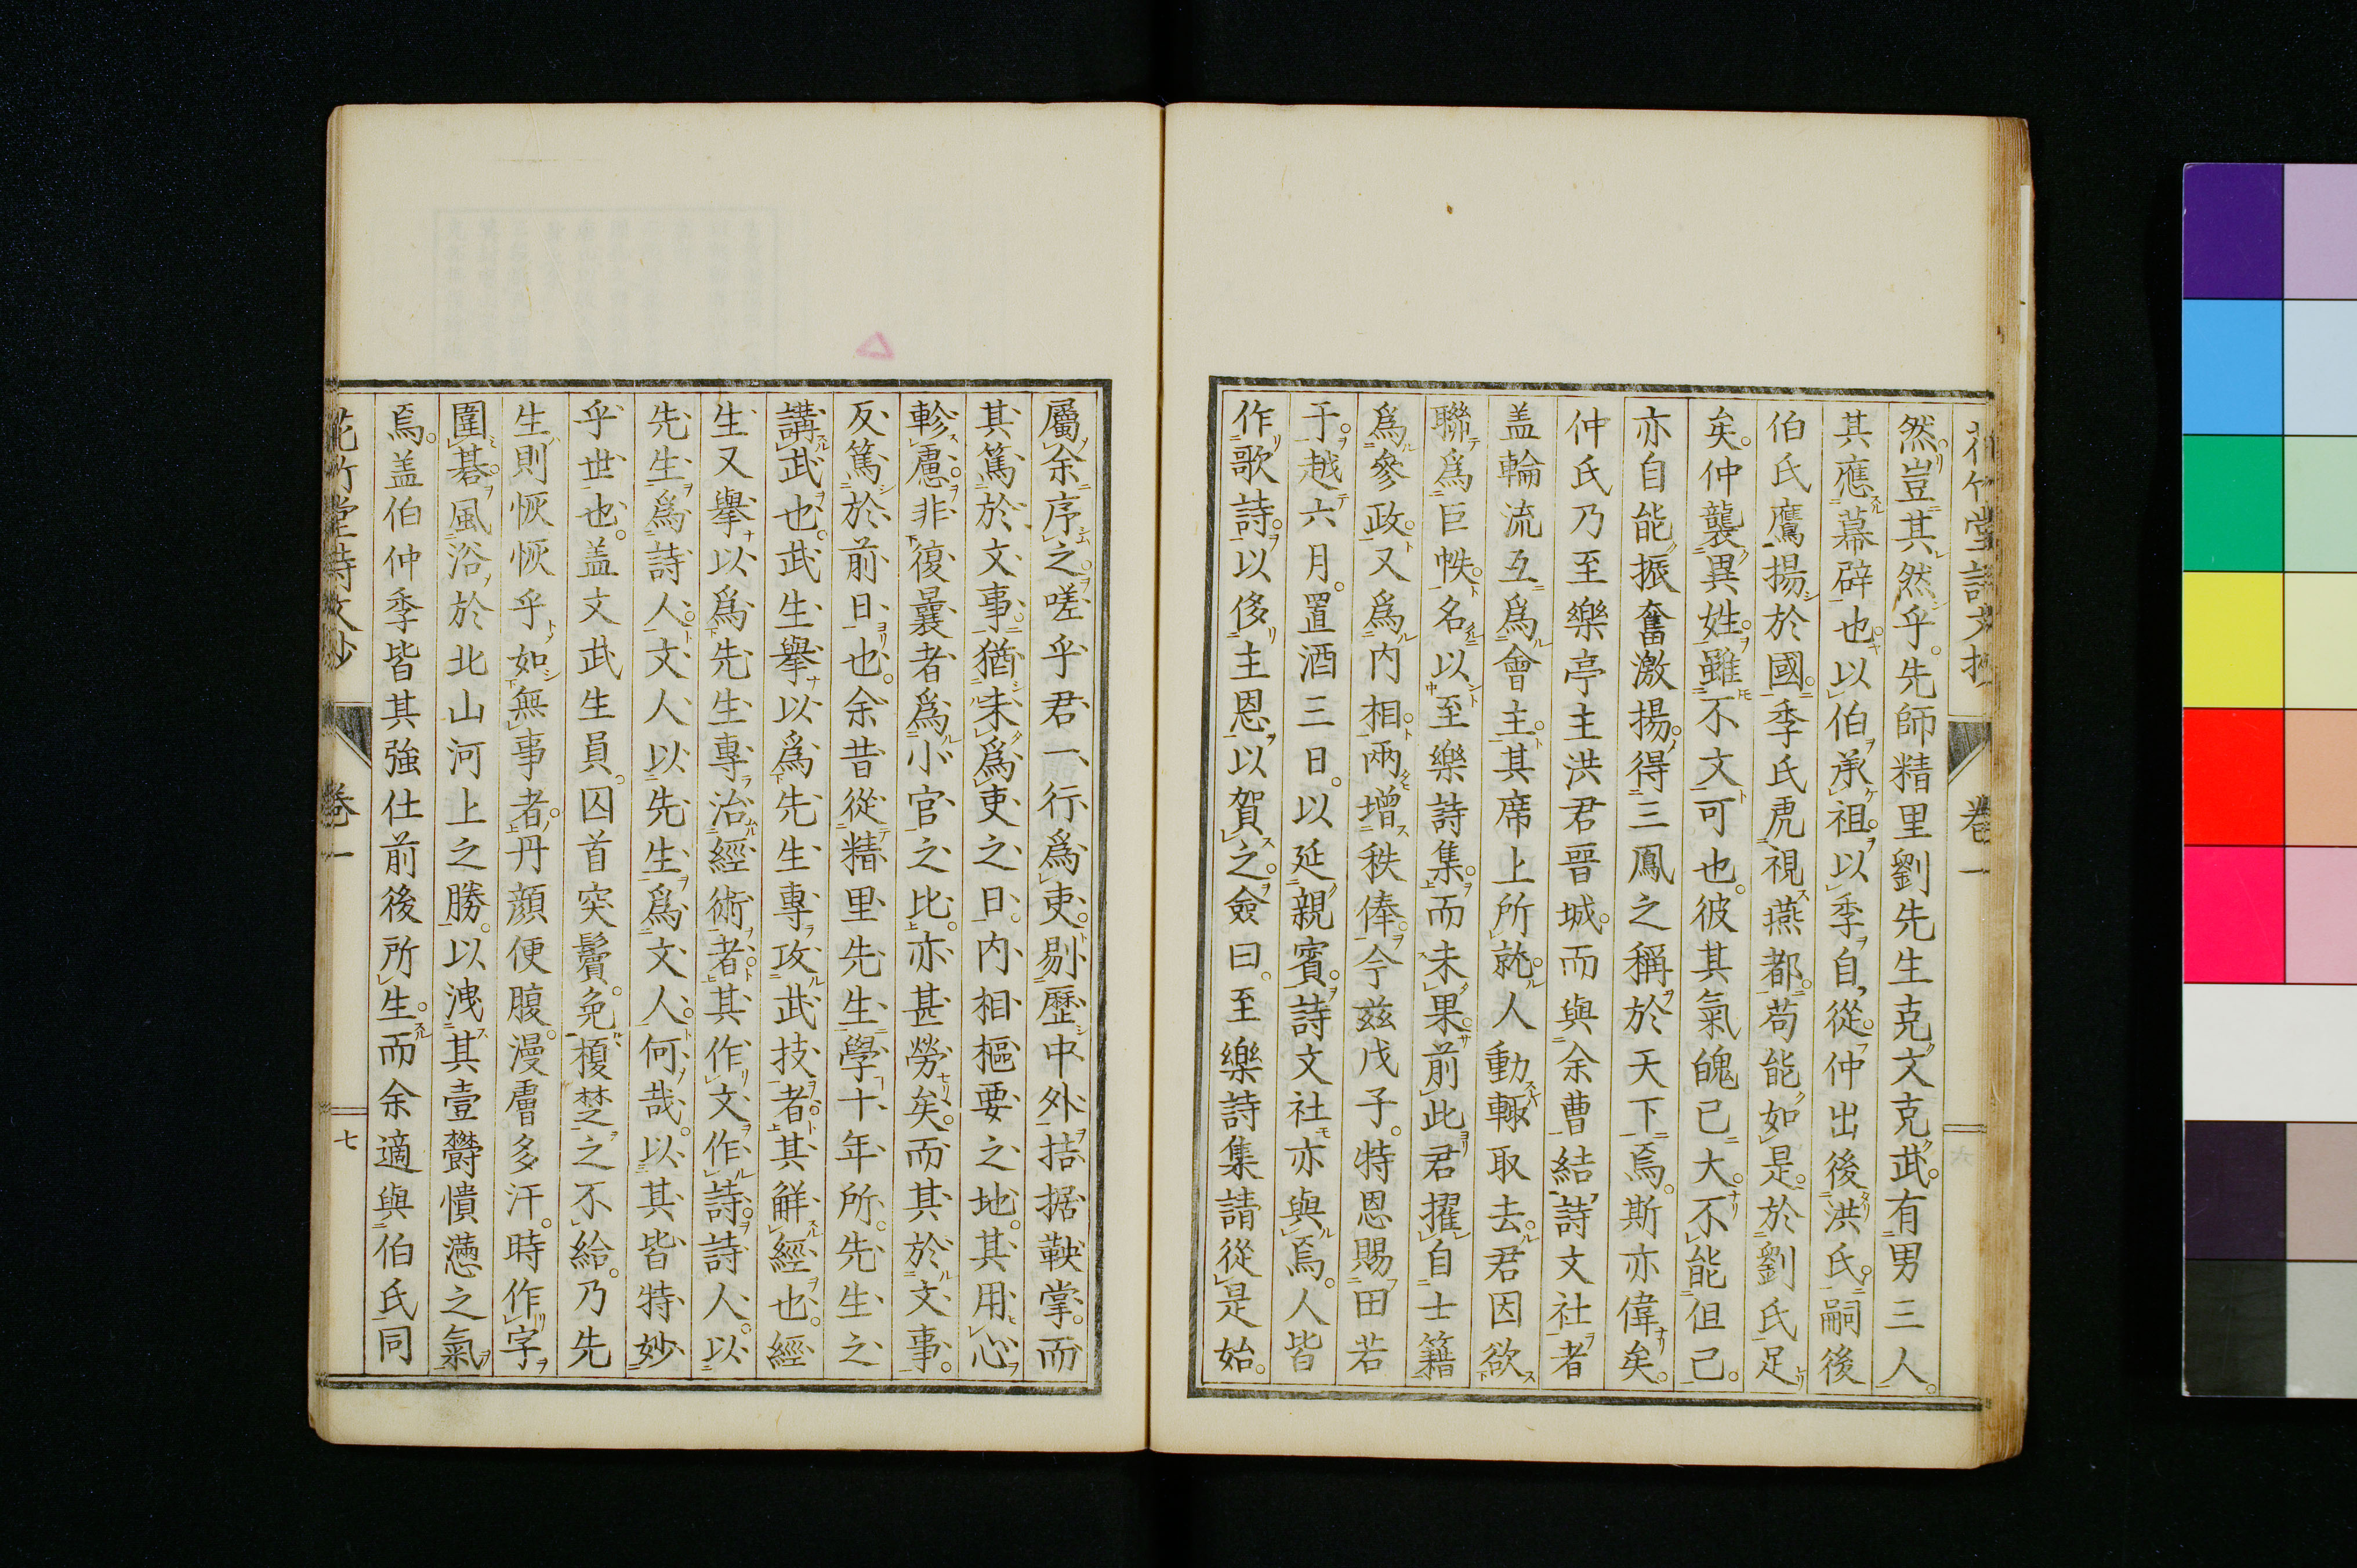 花竹堂詩文抄 卷一 六
然豈其然乎。先師精里劉先生克文克武。有男三人。
其應幕辟也。以伯承祖。以季自從。仲出後洪氏。嗣後
伯氏鷹揚於國。季氏虎視燕都。苟能如是。於劉氏足
矣。仲襲異姓。雖不文可也。彼其氣魄已大。不能但已。
亦自能振奮激揚。得三鳳之稱於天下焉。斯亦偉矣。
仲氏乃至樂亭主洪君晉城。而與余曹結詩文社者
盖輪流互爲會主。其席上所就。人動輙取去。君因欲
聯爲巨帙。名以至樂詩集。而未果。前此君擢自士籍
爲參政。又爲内相。兩增秩俸。今茲戊子。特恩賜田若
于越六月。置酒三日。以延親賓。詩文社亦與焉。人皆
作歌詩。以侈主恩。以賀之。僉曰。至樂詩集請從是始。
屬余序之。嗟乎君一行爲吏。剔歷中外。拮据鞅掌。而
其篤於文事。猶未爲吏之日。内相樞要之地。其用心
軫慮。非復曩者爲小官之比。亦甚勞矣。而其於文事。
反篤於前日也。余昔從精里先生學十年所。先生之
講武也。武生擧以爲先生專攻武技者。其觧經也。經
生又擧以爲先生專治經術者。其作文作詩。詩人以
先生爲詩人。文人以先生爲文人。何哉。以其皆特妙
乎世也。盖文武生員。囚首突鬢。免榎楚之不給。乃先
生則恢恢乎如無事者。丹顔便腹。漫膚多汗。時作字
圍碁。風浴於北山河上之勝。以洩其壹欝憤懣之氣
焉。盖伯仲季皆其強仕前後所生。而余適與伯氏同
花竹堂詩文抄 卷一 七